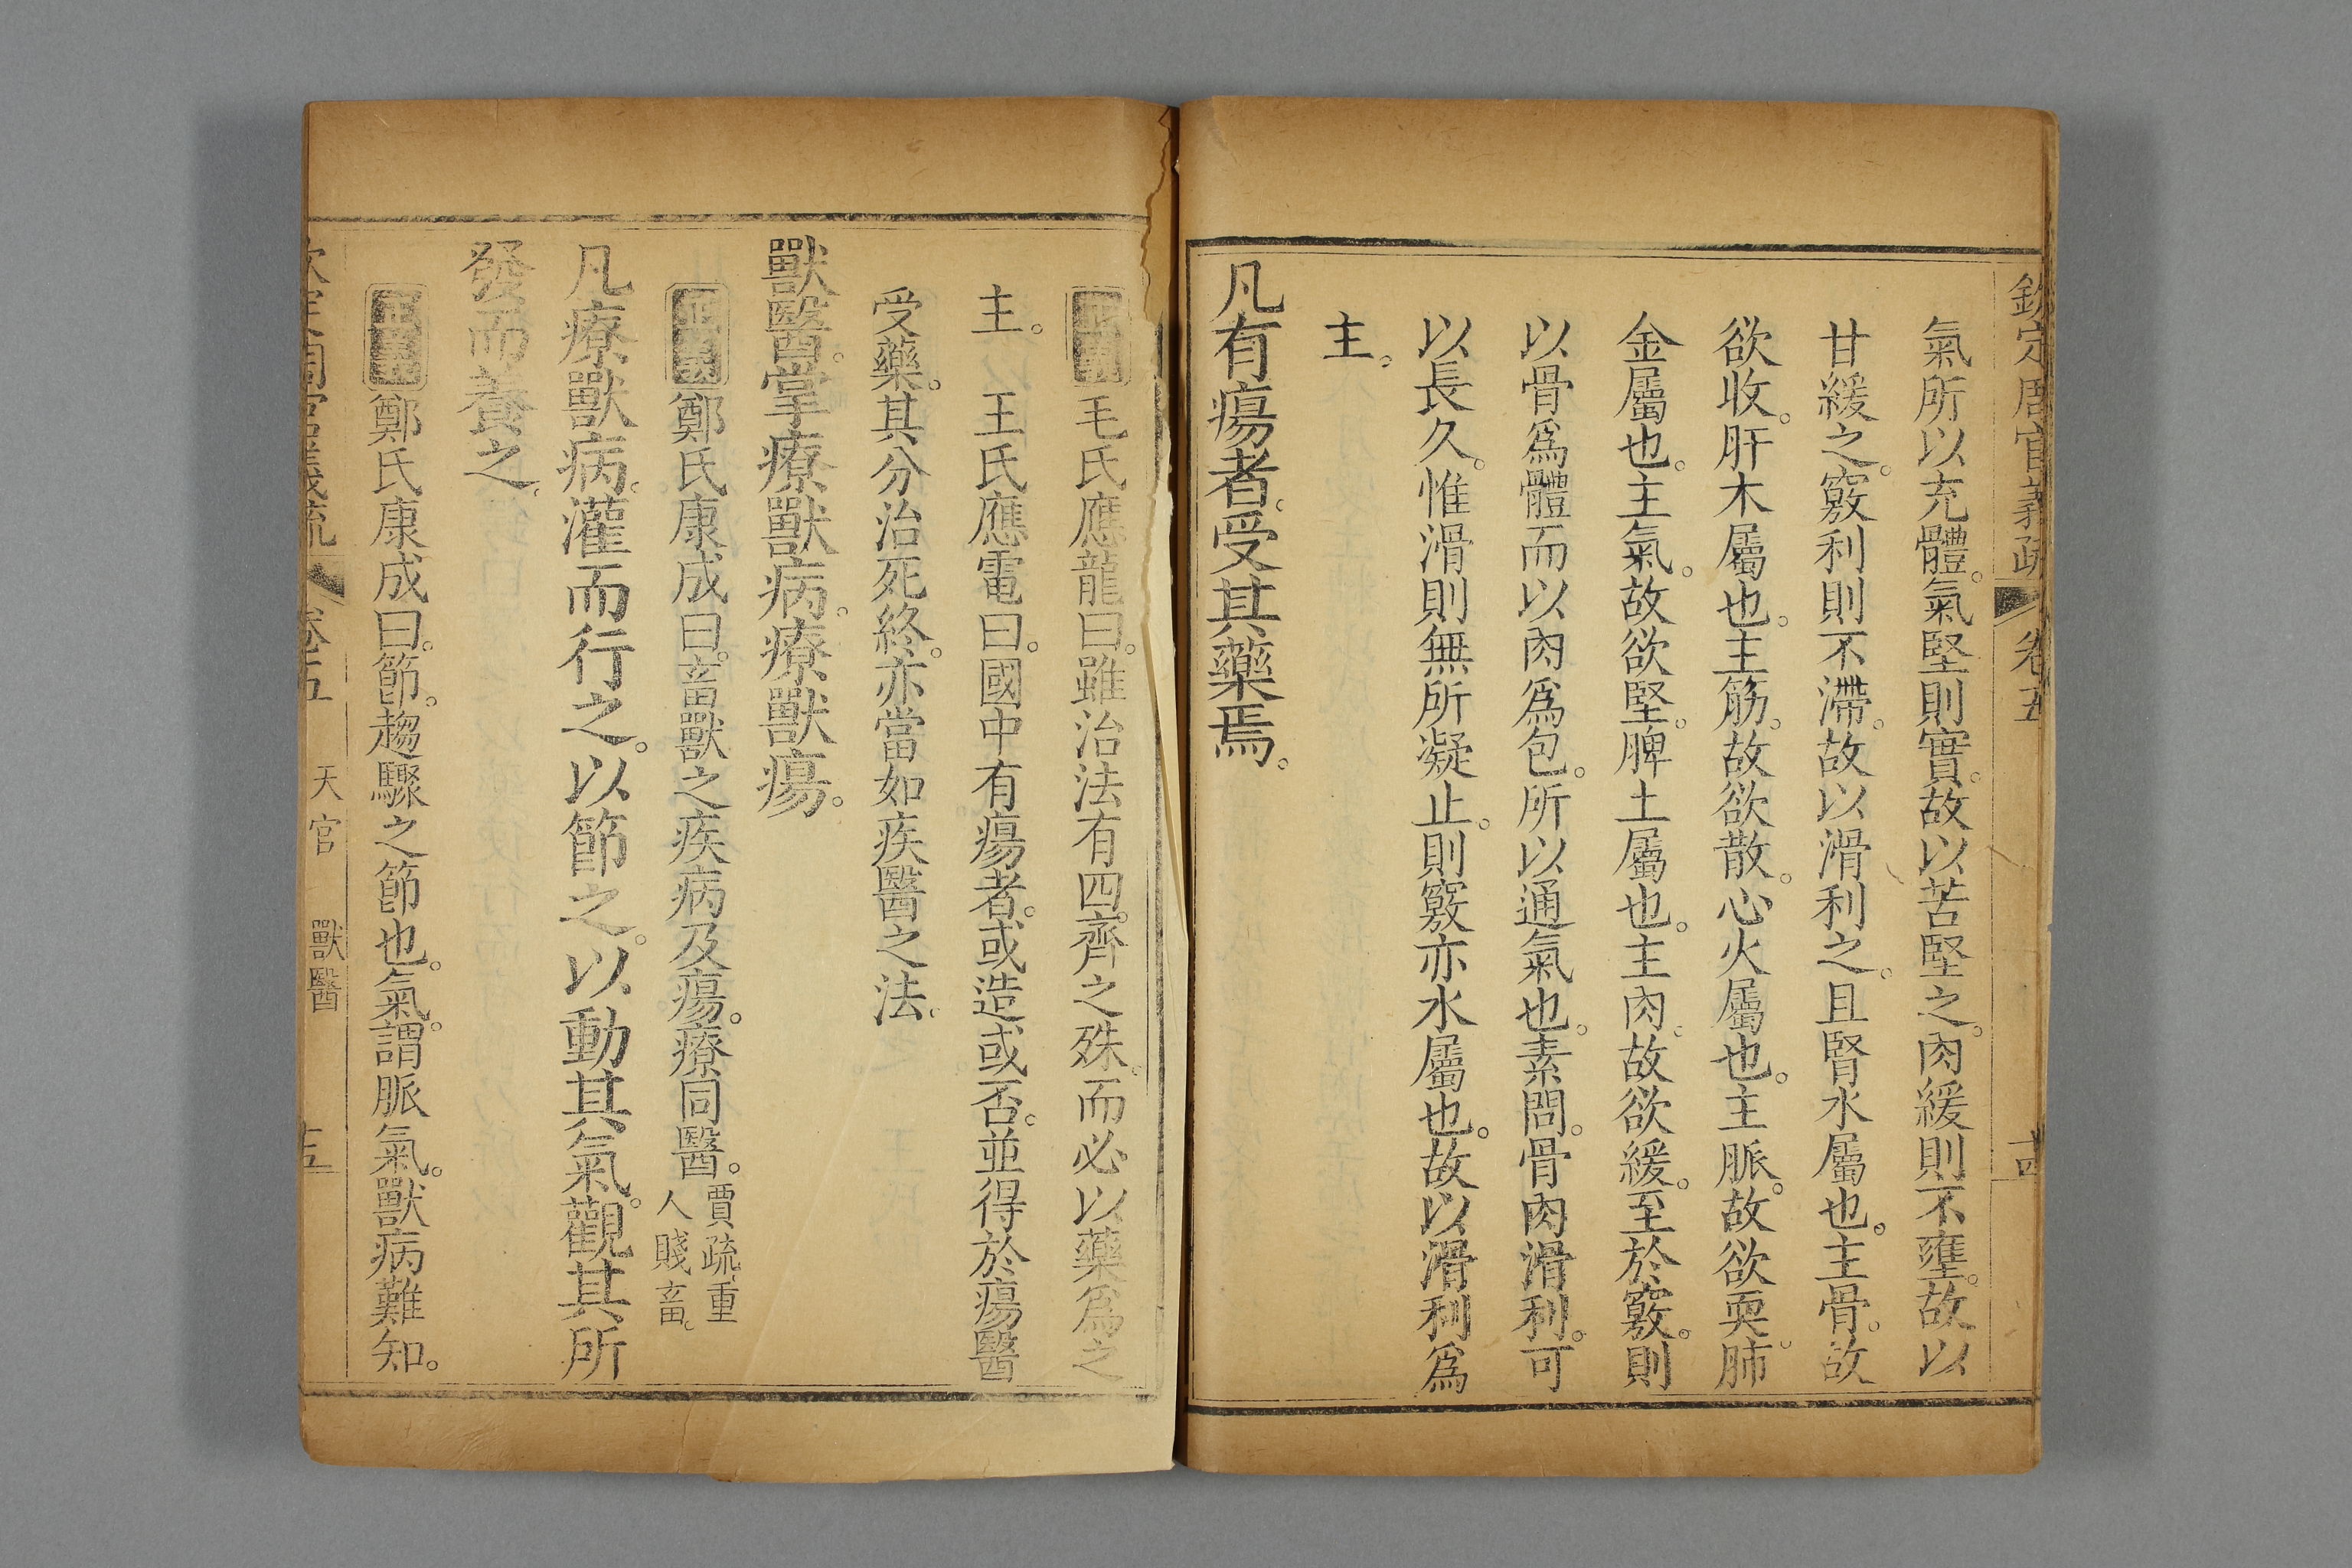 欽定周官義疏 卷五 十四
氣所以充體。氣堅則實。故以苦堅之。肉緩則不壅。故以
甘緩之。竅利則不滯。故以滑利之。且腎水屬也。主骨。故
欲收。肝木屬也。主筋。故欲散。心火屬也。主脈。故欲耎。肺
金屬也。主氣。故欲堅。脾土屬也。主肉。故欲緩。至於竅。則
以骨爲體而以肉爲包。所以通氣也。素問。骨肉滑利。可
以長久。惟滑則無所凝止。則竅亦水屬也。故以滑利爲
主。
凡有瘍者。受其藥焉。
毛氏應龍曰。雖治法有四齊之殊。而必以藥爲之
主。 王氏應電曰。國中有瘍者。或造或否。並得於瘍醫
受藥。其分治死終。亦當如疾醫之法。
獸醫。掌療獸病。療獸瘍。
正義鄭氏康成曰。畜獸之疾病及瘍。療同醫。賈疏。重
人賤畜。
凡療獸病。灌而行之。以節之。以動其氣。觀其所
發而養之。
正義鄭氏康成曰。節。趨驟之節也。氣。謂脈氣。獸病難知。
欽定周官義疏 卷五 天官 獸醫 十五